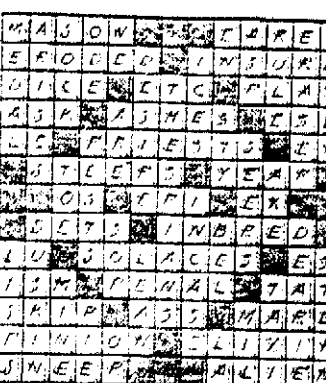 MASON CARE
ERODED INSUR
DICE ETC FLA
ASP ASHES ES
LS PRIESTS
STEEPS YEAR
OS TRI EK
SETS INBRED
LU SOLACES ES
ISM PENAL TAT
SKIP ASS MAR
PINION ELIXI
SNEER ALIE